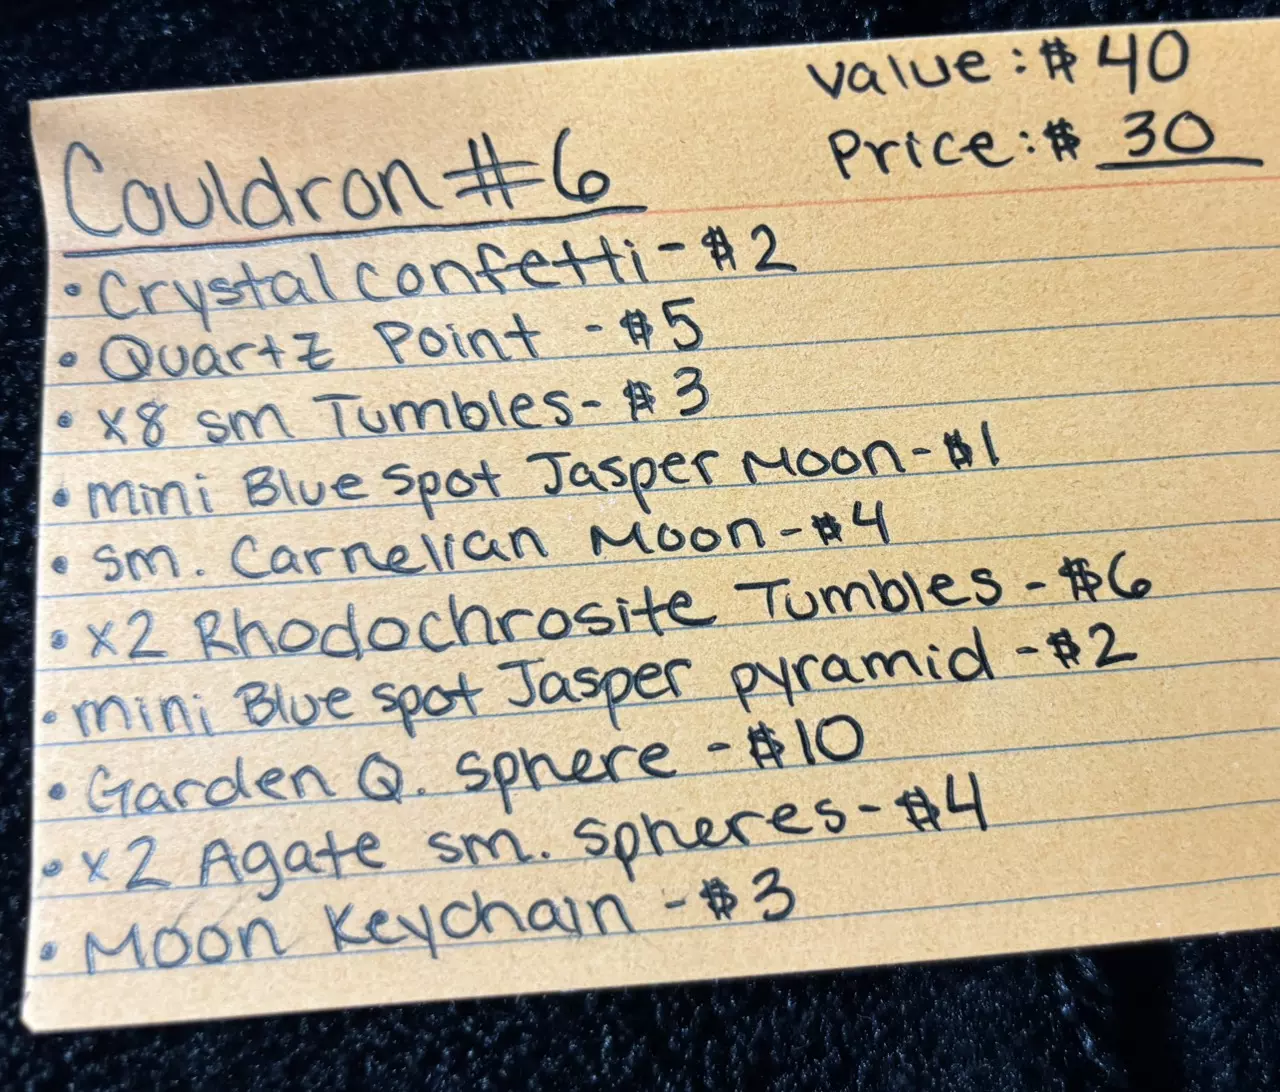 Value: $40
Price: $ 30
Couldron #6
• Crystal Confetti - $2
• Quartz Point - $5
• x8 sm Tumbles - $3
• mini Blue Spot Jasper Moon - $1
• sm. Carnelian Moon - $4
• x2 Rhodochrosite Tumbles - $6
• mini Blue spot Jasper pyramid - $2
• Garden Q. sphere - $10
• x2 Agate sm. spheres - $4
• Moon Keychain - $3